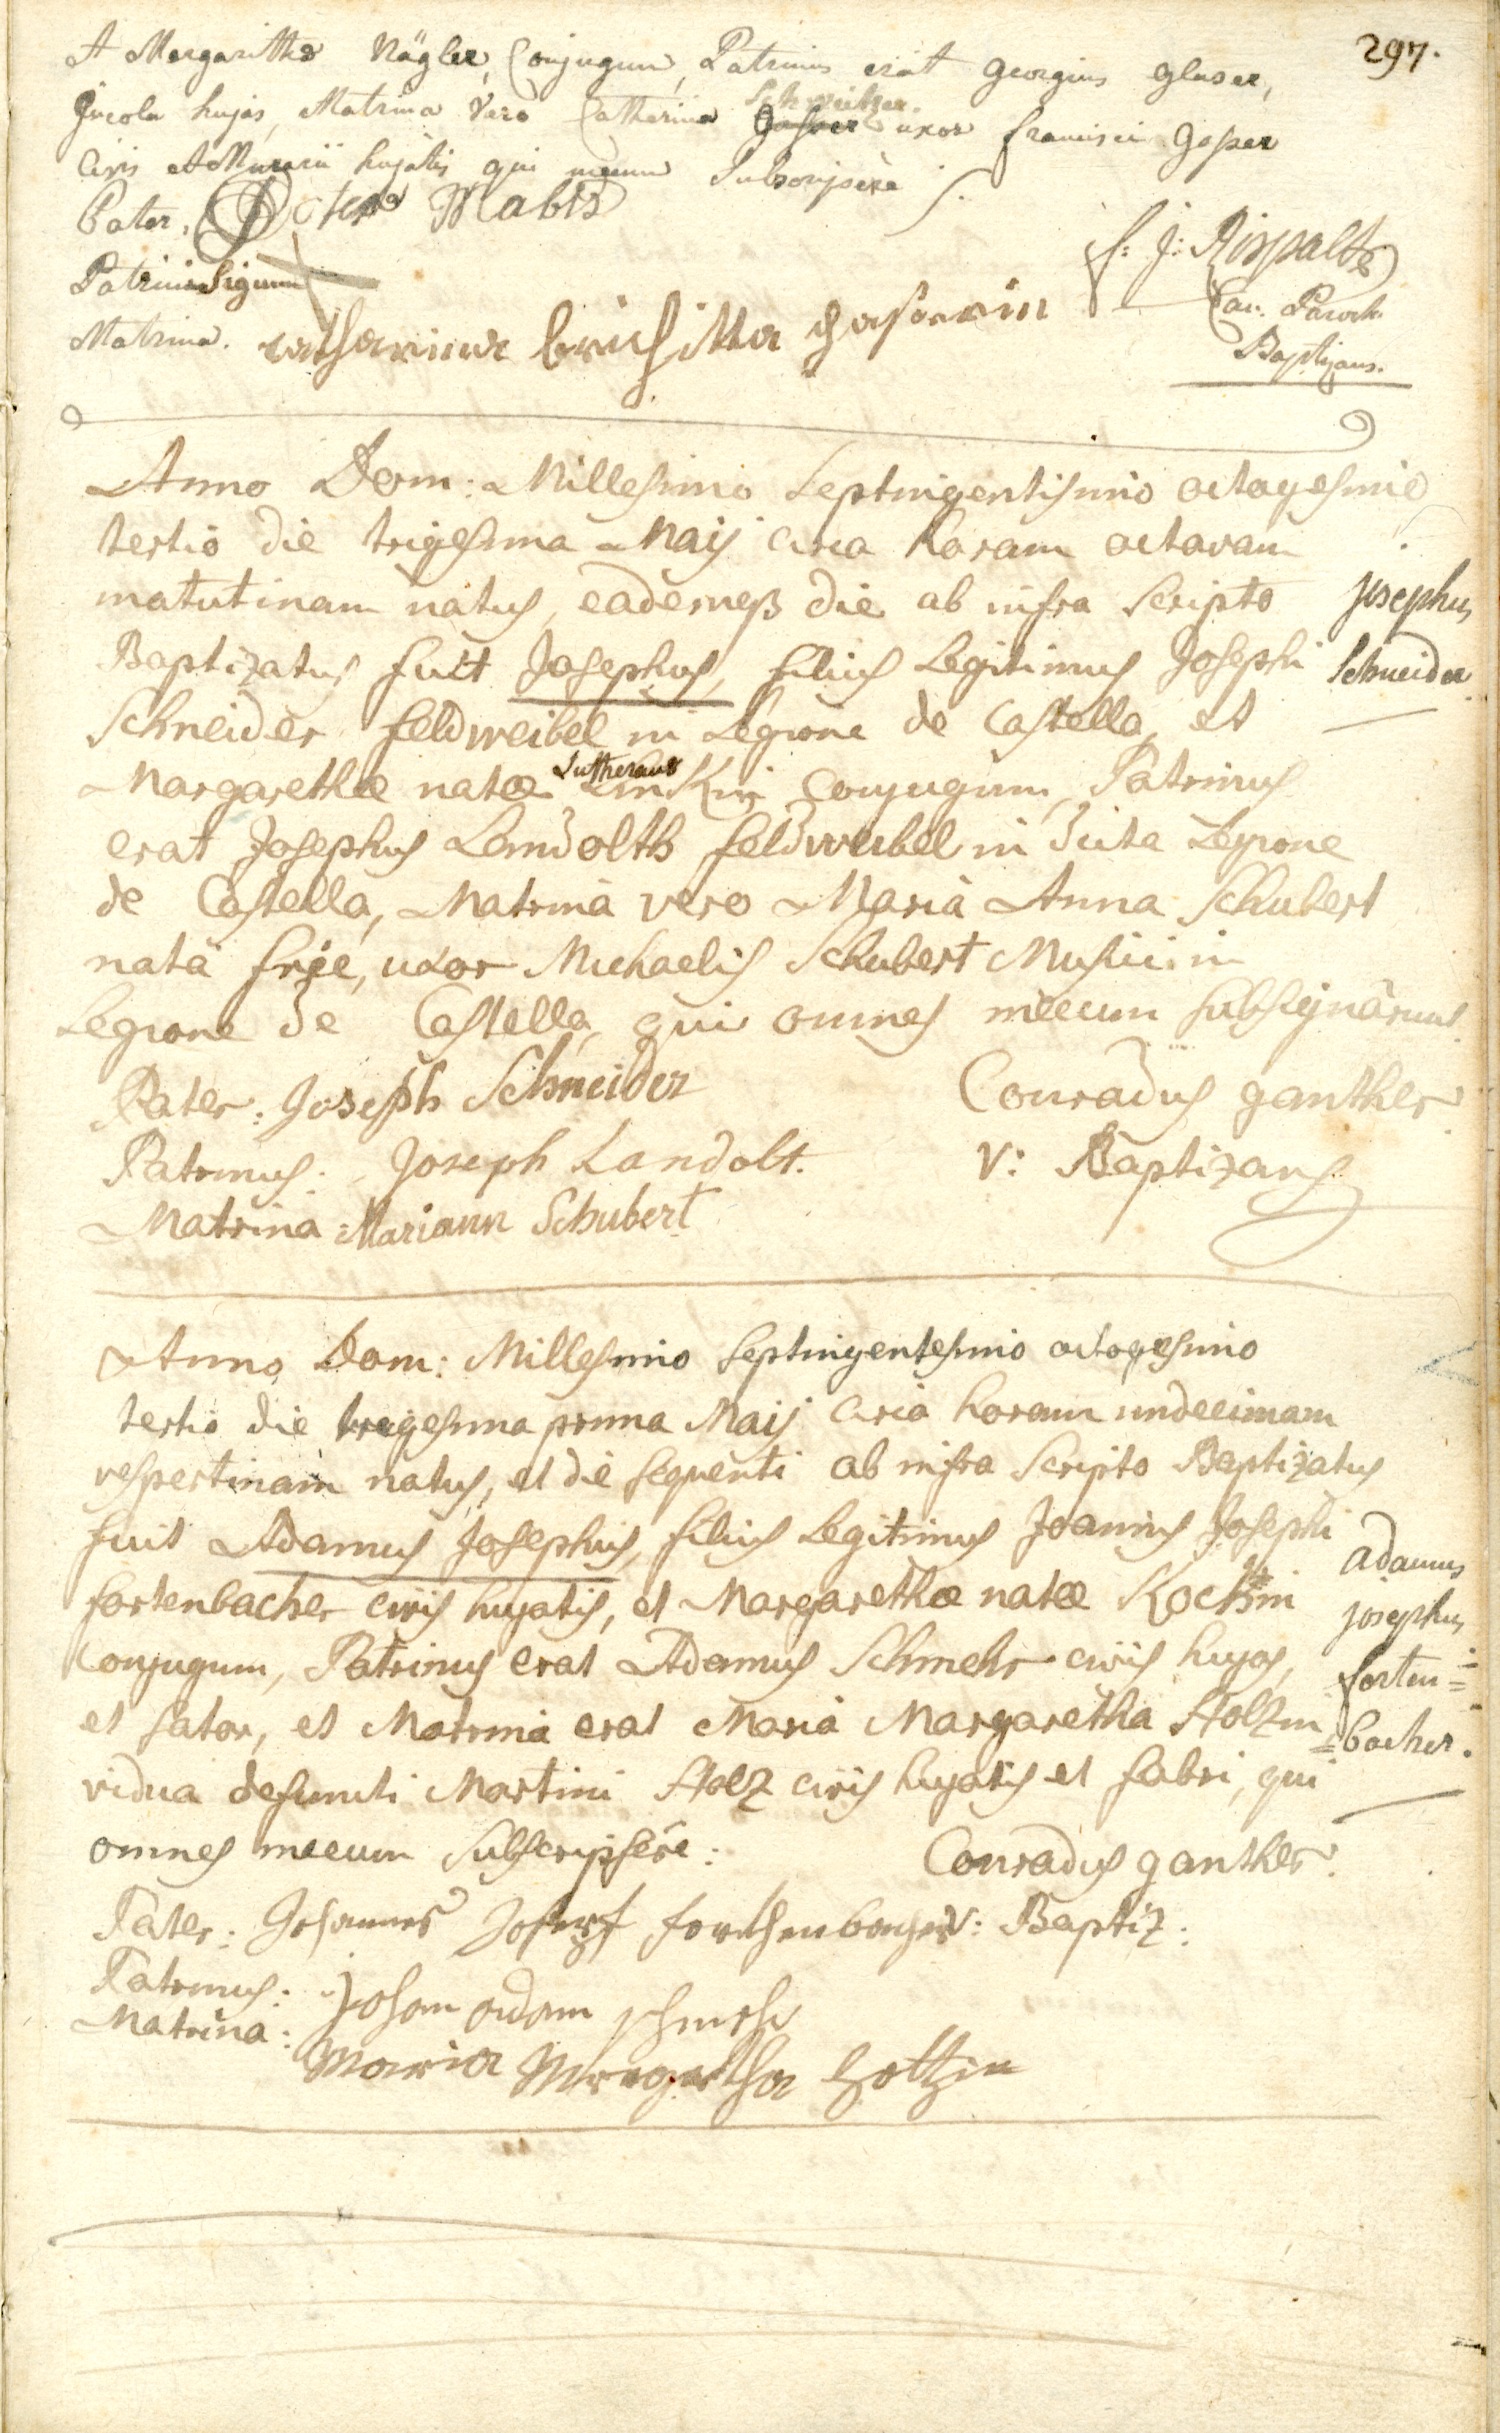 297.
et Margaritha Nägler, Conjugum, Patrinus erat georgius glaser,
Incola hujas, Matrina vero Catharina Schweitzer uxor francisci gasser
Civis et Murarii hujatis qui mecum Subscripsere
Pater. Peter Mabis
Patrini Signum
Matrina. catharina brichitta gasserin
f: J: Rispalts
Cap. Paroch.
Baptizans.
Anno Dom: Millesimo Septingentisimo octogesimo
tertio die trigesima Maij circa horam octavam
matutinam natus, eademq die ab infra Scripto
Baptizatus fuit Josephus, filius Legitimus Josephi
Schneider feldweibel in Legione de Castella, et
Josephus
Schneider
Lutherana
Margarethæ natæ Linkin Conjugum, Patrinus
erat Josephus Landolth feldweibel in dicta Legione
de Castella, Matrina vero Maria Anna Schubert
nata frie, uxor Michaelis Schubert Musici in
Legione de Castella, qui omnes mecum subsignârunt
Pater: Joseph Schneider
Conradus ganther
Patrinus: Joseph Landolt.
V: Baptizans
Matrina: Mariann Schubert
Anno Dom: Millesimo septingentesimo octogesimo
tertio die trigesima prima Maij circa horam undecimam
vespertinam natus, et die sequenti ab infra Scripto Baptizatus
fuit Adamus Josephus, filius Legitimus Joannis Josephi
fortenbacher civis hujatis, et Margarethæ natæ Kochin
Conjugum, Patrinus erat Adamus Schmehr civis hujas,
et sator, et Matrina erat Maria Margaretha Stolzin
vidua defuncti Martini Stolz civis hujatis et fabri, qui
omnes mecum Subscripsêre:
adamus
josephus
forten=
=bacher.
Conradus ganther.
Pater: Johannes Joseph forthenbacher
V: Baptiz:
Patrinus: Johan adam schmehr
Matrina: Maria Margretha